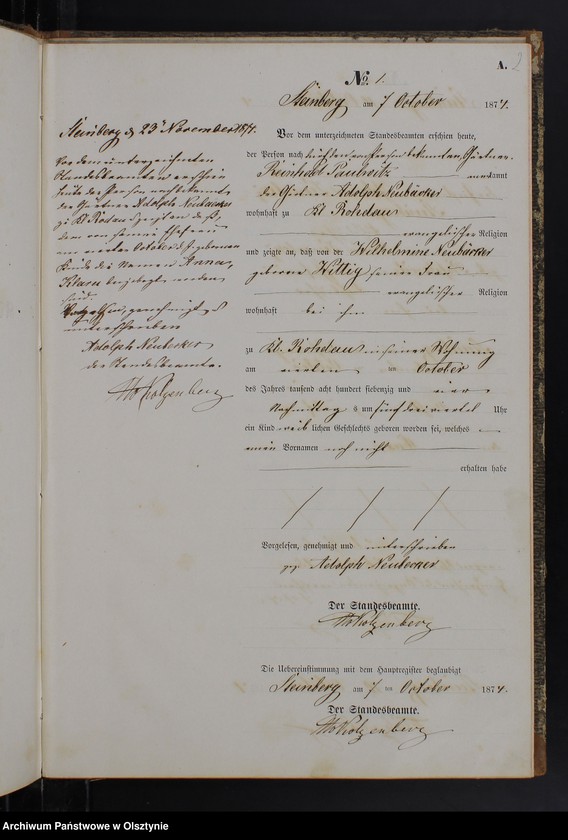 A. 2
No. 1.
Steinberg am 7 October 1874.
Vor dem unterzeichneten Standesbeamten erschien heute,
der Person nach
Reinhold Paulwitz anerkannt
der Gärtner Adolph Neubäcker
wohnhaft zu Kl Rohdau
evangelischer Religion
und zeigte an, daß von der Wilhelmine Neubäcker
geborene Wittig seiner Frau
evangelischer Religion
wohnhaft bei ihm
zu Kl. Rohdau in seiner Wohnung
am vierten ten October
des Jahres tausend acht hundert siebenzig und vier
Nachmittag s um fünf dreiviertel Uhr
ein Kind weib lichen Geschlechts geboren worden sei, welches
einen Vornamen noch nicht
erhalten habe
Vorgelesen, genehmigt und unterschrieben
Adolph Neubecker
Der Standesbeamte.
Die Uebereinstimmung mit dem Hauptregister beglaubigt
Steinberg am 7 ten October 1874.
Der Standesbeamte.
Steinberg d 23t November 1874.
Vor dem unterzeichneten
Standesbeamten erschien
heute der Person nach bekannt
der Gärtner Adolph Neubecker
zu Kl Rodau und zeigte an daß,
dem von seiner Ehefrau
am vierten October d. J. geborenen
Kinde die Namen Anna,
Klara beigelegt worden
sind.
Vorgelesen, genehmigt u
unterschrieben
Adolph Neubecker
der Standesbeamte.
Archiwum Państwowe w Olsztynie